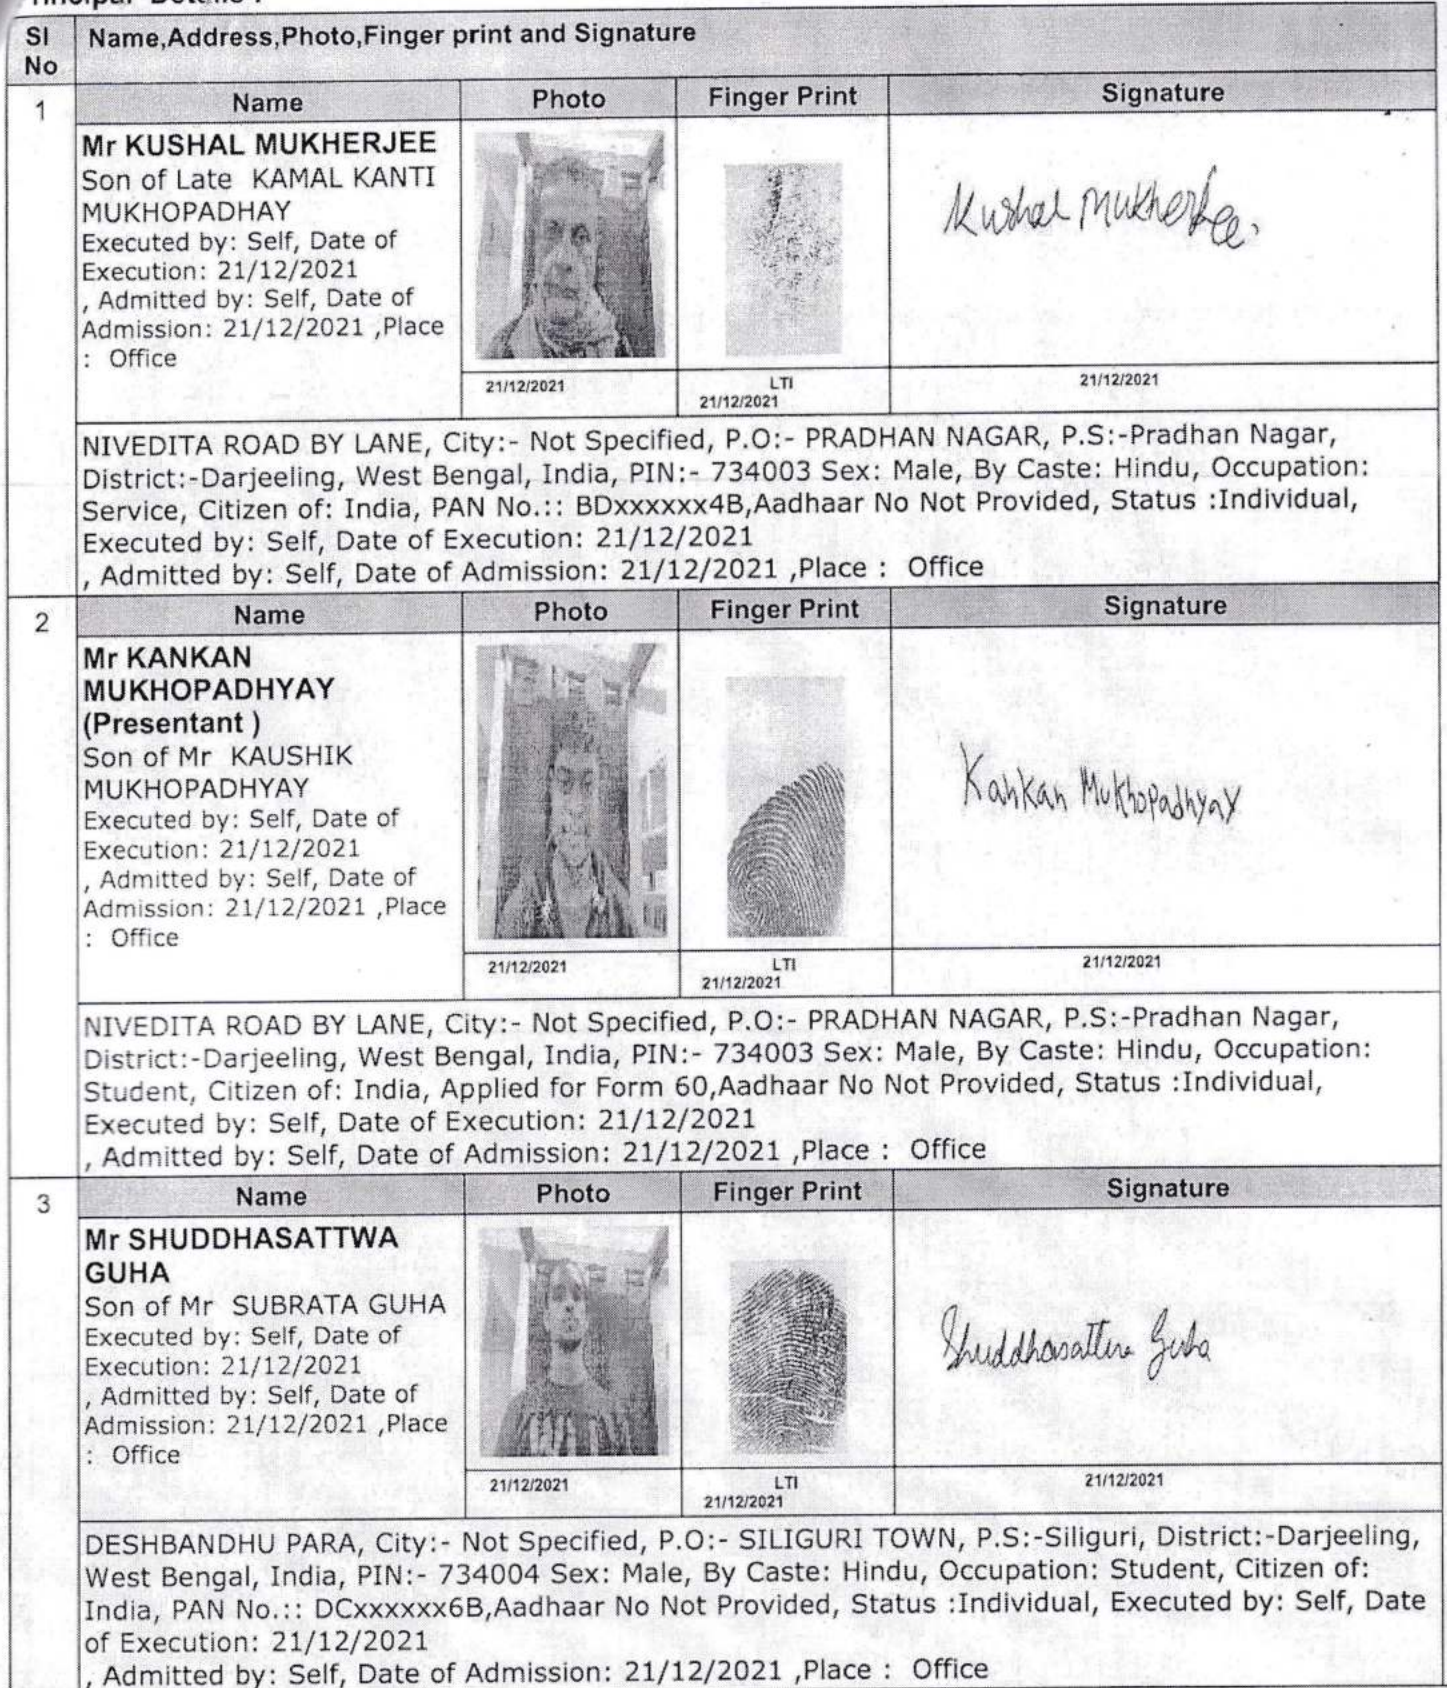 Details :
Sl No
Name,Address,Photo,Finger print and Signature
1
Name
Photo
Finger Print
Signature
Mr KUSHAL MUKHERJEE
Son of Late KAMAL KANTI
MUKHOPADHAY
Executed by: Self, Date of
Execution: 21/12/2021
, Admitted by: Self, Date of
Admission: 21/12/2021 ,Place
: Office
Kushal Mukherjee.
21/12/2021
LTI
21/12/2021
21/12/2021
NIVEDITA ROAD BY LANE, City:- Not Specified, P.O:- PRADHAN NAGAR, P.S:-Pradhan Nagar,
District:-Darjeeling, West Bengal, India, PIN:- 734003 Sex: Male, By Caste: Hindu, Occupation:
Service, Citizen of: India, PAN No.:: BDxxxxxx4B,Aadhaar No Not Provided, Status :Individual,
Executed by: Self, Date of Execution: 21/12/2021
, Admitted by: Self, Date of Admission: 21/12/2021 ,Place : Office
2
Name
Photo
Finger Print
Signature
Mr KANKAN
MUKHOPADHYAY
(Presentant )
Son of Mr KAUSHIK
MUKHOPADHYAY
Executed by: Self, Date of
Execution: 21/12/2021
, Admitted by: Self, Date of
Admission: 21/12/2021 ,Place
: Office
Kankan Mukhopadhyay
21/12/2021
LTI
21/12/2021
21/12/2021
NIVEDITA ROAD BY LANE, City:- Not Specified, P.O:- PRADHAN NAGAR, P.S:-Pradhan Nagar,
District:-Darjeeling, West Bengal, India, PIN:- 734003 Sex: Male, By Caste: Hindu, Occupation:
Student, Citizen of: India, Applied for Form 60,Aadhaar No Not Provided, Status :Individual,
Executed by: Self, Date of Execution: 21/12/2021
, Admitted by: Self, Date of Admission: 21/12/2021 ,Place : Office
3
Name
Photo
Finger Print
Signature
Mr SHUDDHASATTWA
GUHA
Son of Mr SUBRATA GUHA
Executed by: Self, Date of
Execution: 21/12/2021
, Admitted by: Self, Date of
Admission: 21/12/2021 ,Place
: Office
Shuddhasattwa Guha
21/12/2021
LTI
21/12/2021
21/12/2021
DESHBANDHU PARA, City:- Not Specified, P.O:- SILIGURI TOWN, P.S:-Siliguri, District:-Darjeeling,
West Bengal, India, PIN:- 734004 Sex: Male, By Caste: Hindu, Occupation: Student, Citizen of:
India, PAN No.:: DCxxxxxx6B,Aadhaar No Not Provided, Status :Individual, Executed by: Self, Date
of Execution: 21/12/2021
, Admitted by: Self, Date of Admission: 21/12/2021 ,Place : Office